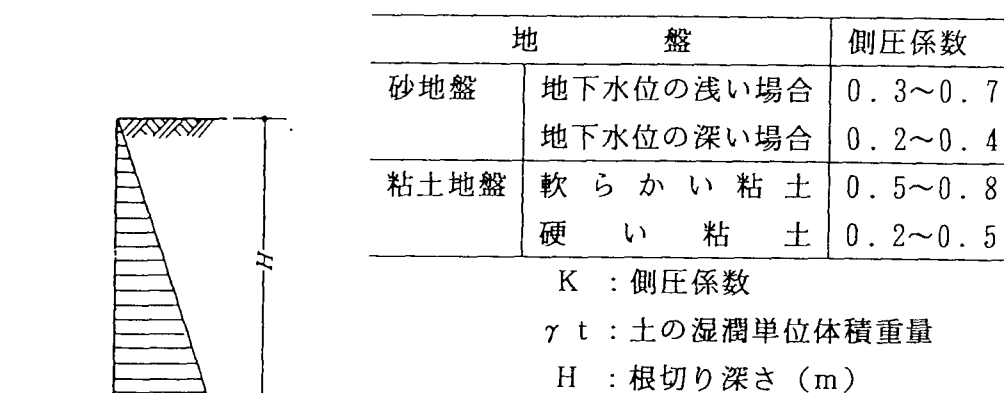 地盤 側圧係数
砂地盤 地下水位の浅い場合 0.3~0.7
地下水位の深い場合 0.2~0.4
粘土地盤 軟らかい粘土 0.5~0.8
硬い粘土 0.2~0.5
H
K :側圧係数
γt:土の湿潤単位体積重量
H :根切り深さ(m)